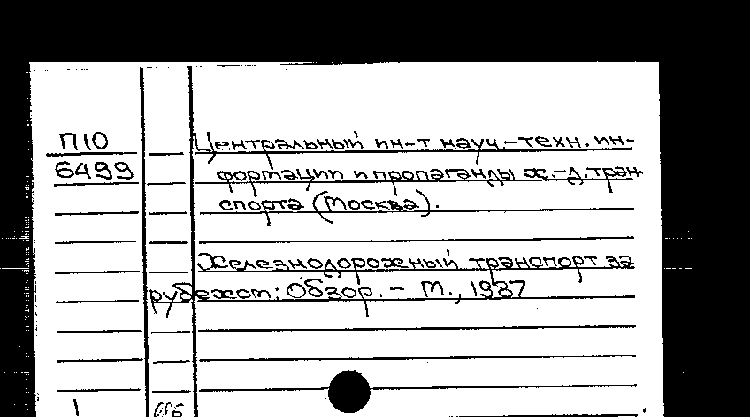 П10
6499
Центральный ин-т науч.-техн. ин-
формации и пропаганды ж.-д. тран-
спорта (Москва).
Железнодорожный транспорт за
рубежом: Обзор. - М., 1987
1